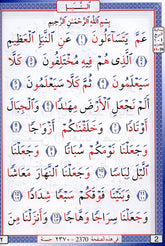 النبأ
بِسْمِ اللَّهِ الرَّحْمَٰنِ الرَّحِيمِ
عَمَّ يَتَسَاءَلُونَ ۝١ عَنِ النَّبَإِ الْعَظِيمِ
۝٢ الَّذِي هُمْ فِيهِ مُخْتَلِفُونَ ۝٣ كَلَّا
سَيَعْلَمُونَ ۝٤ ثُمَّ كَلَّا سَيَعْلَمُونَ ۝٥
أَلَمْ نَجْعَلِ الْأَرْضَ مِهَادًا ۝٦ وَالْجِبَالَ
أَوْتَادًا ۝٧ وَخَلَقْنَاكُمْ أَزْوَاجًا ۝٨
وَجَعَلْنَا نَوْمَكُمْ سُبَاتًا ۝٩ وَجَعَلْنَا
اللَّيْلَ لِبَاسًا ۝١٠ وَجَعَلْنَا النَّهَارَ مَعَاشًا
۝١١ وَبَنَيْنَا فَوْقَكُمْ سَبْعًا شِدَادًا ۝١٢
وَجَعَلْنَا سِرَاجًا وَهَّاجًا ۝١٣ وَأَنْزَلْنَا مِنَ
2 حسنة ٢٣٧٠ - 2370 في هذه الصفحة ٢